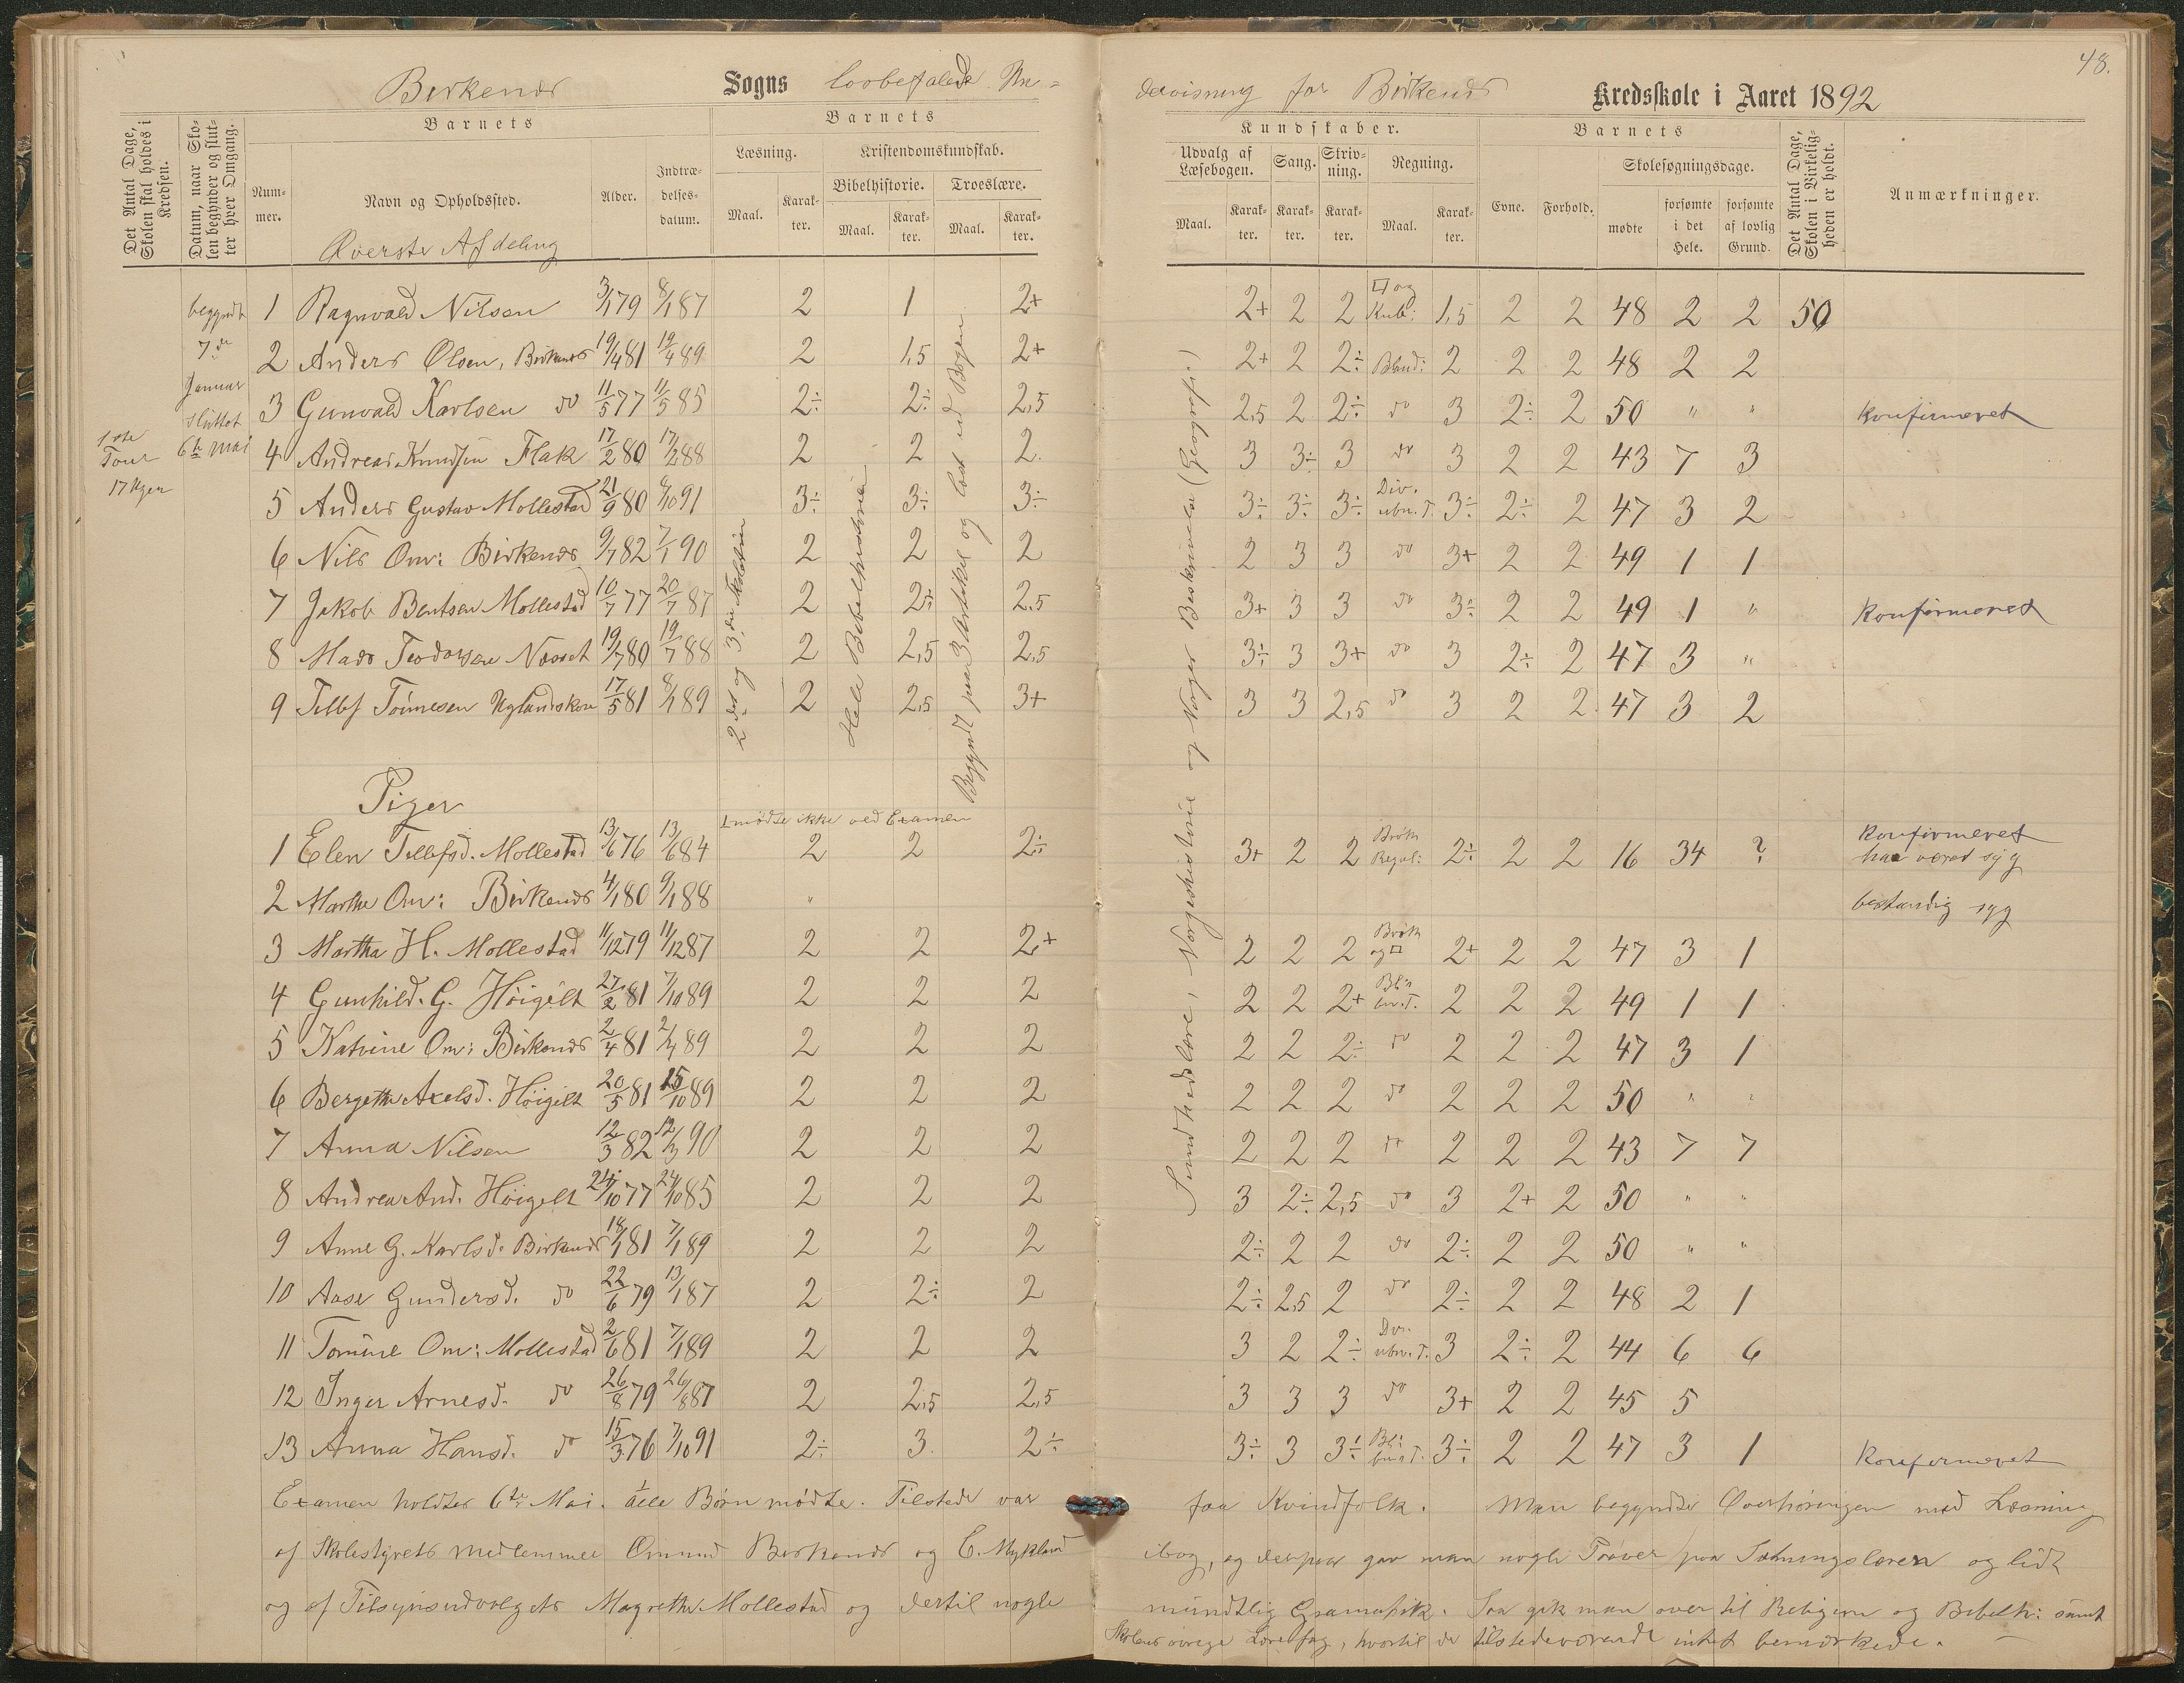 48.
Birkenes Sogns lovbefalede Un= dervisning for Birkenes Kredsskole i Aaret 1892
Det Antal Dage, Skolen skal holdes i Kredsen.
Datum, naar Skolen begynder og slutter hver Omgang.
Barnets
Nummer.
Navn og Opholdssted.
Alder.
Indtrædelsesdatum.
Barnets
Læsning.
Maal. Karakter.
Kristendomskundskab.
Bibelhistorie. Troeslære.
Maal. Karakter. Maal. Karakter.
Kundskaber.
Udvalg af Læsebogen. Sang. Skrivning. Regning.
Maal. Karakter. Karakter. Karakter. Maal. Karakter.
Barnets
Evne. Forhold.
Skolesøgningsdage.
mødte forsømte i det Hele. forsømte af lovlig Grund.
Det Antal Dage, Skolen i Virkeligheden er holdt.
Anmærkninger.
Øverste Afdeling
1ste Tour 17 Uger
begyndt 7de Januar sluttet 6te Mai
2det og 3die
Hele Bibelhistorie
Begyndt paa 3 Artikel og læst ud Bogen
Sundhedslære, Norgeshistorie og Norges Beskrivelse (Geografi)
1 Ragnvald Nilsen 3/1 79 8/1 87 2 1 2+ 2+ 2 2 □ og Kub: 1,5 2 2 48 2 2 50
2 Anders Olsen, Birkenes 19/4 81 19/4 89 2 1,5 2+ 2+ 2 2÷ Bland: 2 2 2 48 2 2
3 Gunvald Karlsen do 11/5 77 11/5 85 2÷ 2÷ 2,5 2,5 2 2÷ do 3 2÷ 2 50 " " Konfirmeret
4 Andreas Knudsen Flak 17/2 80 17/2 88 2 2 2 3 3÷ 3 do 3 2 2 43 7 3
5 Anders Gustav Mollestad 21/9 80 /10 91 3÷ 3÷ 3÷ 3÷ 3÷ 3÷ Div. ubn. T. 3÷ 2÷ 2 47 3 2
6 Nils Om: Birkenes 9/7 82 7/1 90 2 2 2 2 3 3 do 3+ 2 2 49 1 1
7 Jakob Bentsen Mollestad 10/7 77 20/7 87 2 2÷ 2,5 3+ 3 3 do 3÷ 2 2 49 1 " Konfirmeret
8 Mads Teodorsen Næset 19/7 80 19/7 88 2 2,5 2,5 3÷ 3 3+ do 3 2÷ 2 47 3 "
9 Tellef Tønnesen Uglandskm 17/5 81 8/1 89 2 2,5 3+ 3 3 2,5 do 3 2 2 47 3 2
Piger
mødte ikke ved Examen
1 Elen Tellefsd. Mollestad 13/6 76 13/6 84 2 2 2÷ 3+ 2 2 Brøk Regul: 2÷ 2 2 16 34 ? Konfirmeret har været syg
2 Marthe Om: Birkenes 4/1 80 9/1 88 " bestandig syg
3 Martha H. Mollestad 11/12 79 11/12 87 2 2 2+ 2 2 2 Brøk og □ 2+ 2 2 47 3 1
4 Gunhild. G. Høigilt 27/2 81 7/10 89 2 2 2 2 2 2+ Bl: bn. T. 2 2 2 49 1 1
5 Katrine Om: Birkenes 2/4 81 2/4 89 2 2 2 2 2 2÷ do 2 2 2 47 3 1
6 Bergethe Axelsd. Høigilt 20/5 81 15/10 89 2 2 2 2 2 2 do 2 2 2 50 " "
7 Anna Nilsen 12/3 82 12/3 90 2 2 2 2 2 2 do 2 2 2 43 7 7
8 Andrea And. Høigilt 24/10 77 24/10 85 2 2 2 3 2÷ 2,5 do 3 2+ 2 50 " "
9 Anne G. Karlsd. Birkenes 18/1 81 7/1 89 2 2 2 2÷ 2 2 do 2÷ 2 2 50 " "
10 Aase Gundersd. do 22/6 79 13/1 87 2 2÷ 2 2÷ 2,5 2 do 2÷ 2 2 48 2 1
11 Tomine Om: Mollestad 2/6 81 7/1 89 2 2 2 3 2 2÷ Div. ubn. T. 3 2÷ 2 44 6 6
12 Inger Arnesd. do 26/8 79 26/8 87 2 2,5 2,5 3 3 3 do 3+ 2 2 45 5
13 Anna Hansd. do 15/3 76 7/10 91 2÷ 3 2÷ 3÷ 3 3÷ Bl: T. 3÷ 2 2 47 3 1 Konfirmeret
Examen holdtes 6te Mai. alle Børn mødte. Tilstede var
af Skolestyrets medlemmer Omund Birkenes og C. Mykland
og af Tilsynsudvalgets Magrethe Mollestad og dertil nogle
faa Kvindfolk. Man begyndte Overhøringen med Læsning
ibog, og derpaa gav man nogle Prøver paa Sætningslæren og lidt
mundtlig Gramatik. Saa gik man over til Religion og Bibelh: samt
Skolens øvrige Lærefag, hvortil de tilstedeværende intet bemærkede.